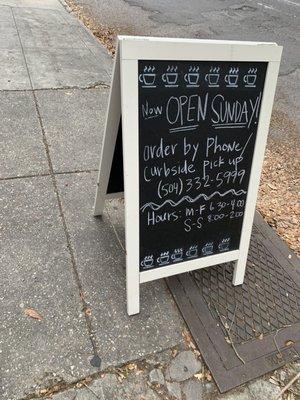 Now OPEN SUNDAY!
order by Phone/
curbside Pick up
(504) 332-5999
Hours: M-F 6:30-4:00
S-S 8:00-2:00